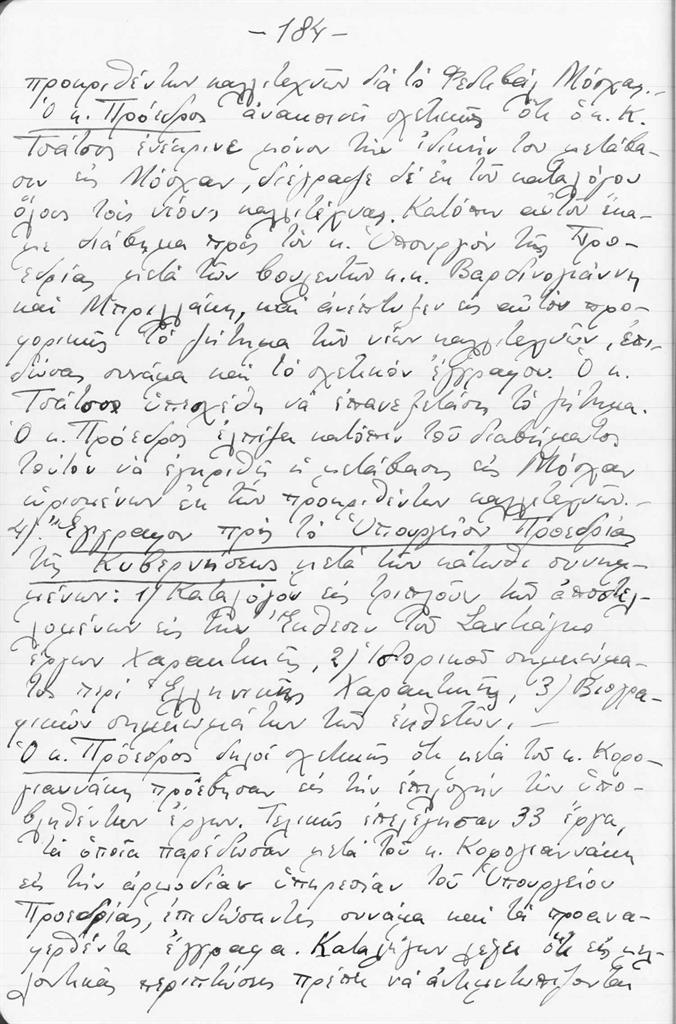 - 184 -
προκριθέντων καλλιτεχνῶν διά τό Φεστιβάλ Μόσχας.-
Ὁ κ. Πρόεδρος ἀνακοινεῖ σχετικῶς ὅτι ὁ κ. Κ.
Τσάτσος ἐνέκρινε μόνον τήν ἰδικήν του μετάβα-
σιν εἰς Μόσχαν, διέγραψε δέ ἐκ τοῦ καταλόγου
ὅλους τούς νέους καλλιτέχνας. Κατόπιν αὐτοῦ ἔκα-
με διάβημα πρός τόν κ. Ὑπουργόν τῆς Προ-
εδρίας μετά τῶν βουλευτῶν κ.κ. Βαρδινογιάννη
καί Μπριλλάκη, καί ἀνέπτυξεν εἰς αὐτόν προ-
φορικῶς τό ζήτημα τῶν νέων καλλιτεχνῶν, ἐπι-
δώσας συνάμα καί τό σχετικόν ἔγγραφον. Ὁ κ.
Τσάτσος ὑπεσχέθη νά ἐπανεξετάσῃ τό ζήτημα.
Ὁ κ. Πρόεδρος ἐλπίζει κατόπιν τοῦ διαβήματος
τούτου νά ἐγκριθῇ ἡ μετάβασις εἰς Μόσχαν
ὡρισμένων ἐκ τῶν προκριθέντων καλλιτεχνῶν.-
4). Ἔγγραφον πρός τό Ὑπουργεῖον Προεδρίας
τῆς Κυβερνήσεως μετά τῶν κάτωθι συνημ-
μένων: 1) Καταλόγου εἰς τριπλοῦν τῶν ἀποστελ-
λομένων εἰς τήν Ἔκθεσιν τοῦ Σαντιάγκο
ἔργων Χαρακτικῆς, 2) Ἱστορικοῦ σημειώμα-
τος περί Ἑλληνικῆς Χαρακτικῆς, 3) Βιογρα-
φικῶν σημειωμάτων τῶν ἐκθετῶν. -
Ὁ κ. Πρόεδρος δηλοῖ σχετικῶς ὅτι μετά τοῦ κ. Κορο-
γιαννάκη προέβησαν εἰς τήν ἐπιλογήν τῶν ὑπο-
βληθέντων ἔργων. Τελικῶς ἐπελέγησαν 33 ἔργα,
τά ὁποῖα παρέδωσαν μετά τοῦ κ. Κορογιαννάκη
εἰς τήν ἁρμοδίαν ὑπηρεσίαν τοῦ Ὑπουργείου
Προεδρίας, ἐπιδώσαντες συνάμα καί τά προανα-
φερθέντα ἔγγραφα. Καταλήγων λέγει ὅτι εἰς μελ-
λοντικάς περιπτώσεις πρέπει νά ἀντιμετωπίζονται